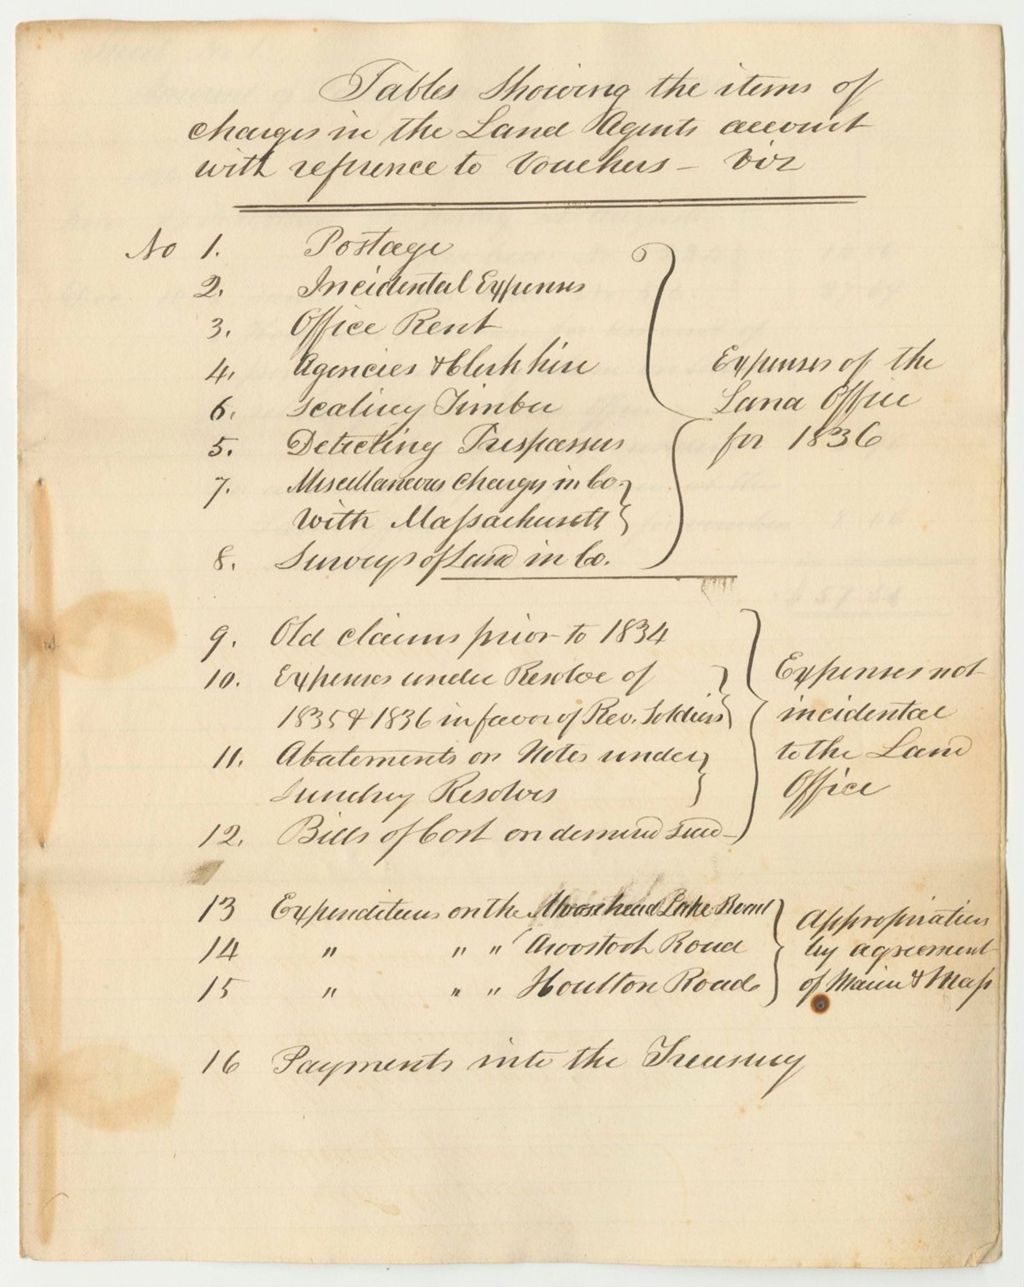 Tables Showing the items of
charges in the Land Agents account
with refrence to Vouchers - Viz
No 1. Postage
2. Incidental Expenses
3. Office Rent
4. Agencies & Clerk hire
6. Scaling Timber
5. Detecting Trespassers
7. Miscellaneous Charges in Co
with Massachusetts
8. Surveys of Land in Co.
Expenses of the
Land Office
for 1836
9. Old claims prior to 1834
10. Expenses under Resolve of
1835 & 1836 in favor of Rev. Soldiers
11. Abatements on Notes under
Sundry Resolves
12. Bills of Cost on demand
Expenses not
incidental
to the Land
Office
13 Expenditures on the Moosehead Lake Road
14 " " " Aroostook Road
15 " " " Houlton Road
Appropriation
by agreement
of Maine & Mass
16 Payments into the Treasury